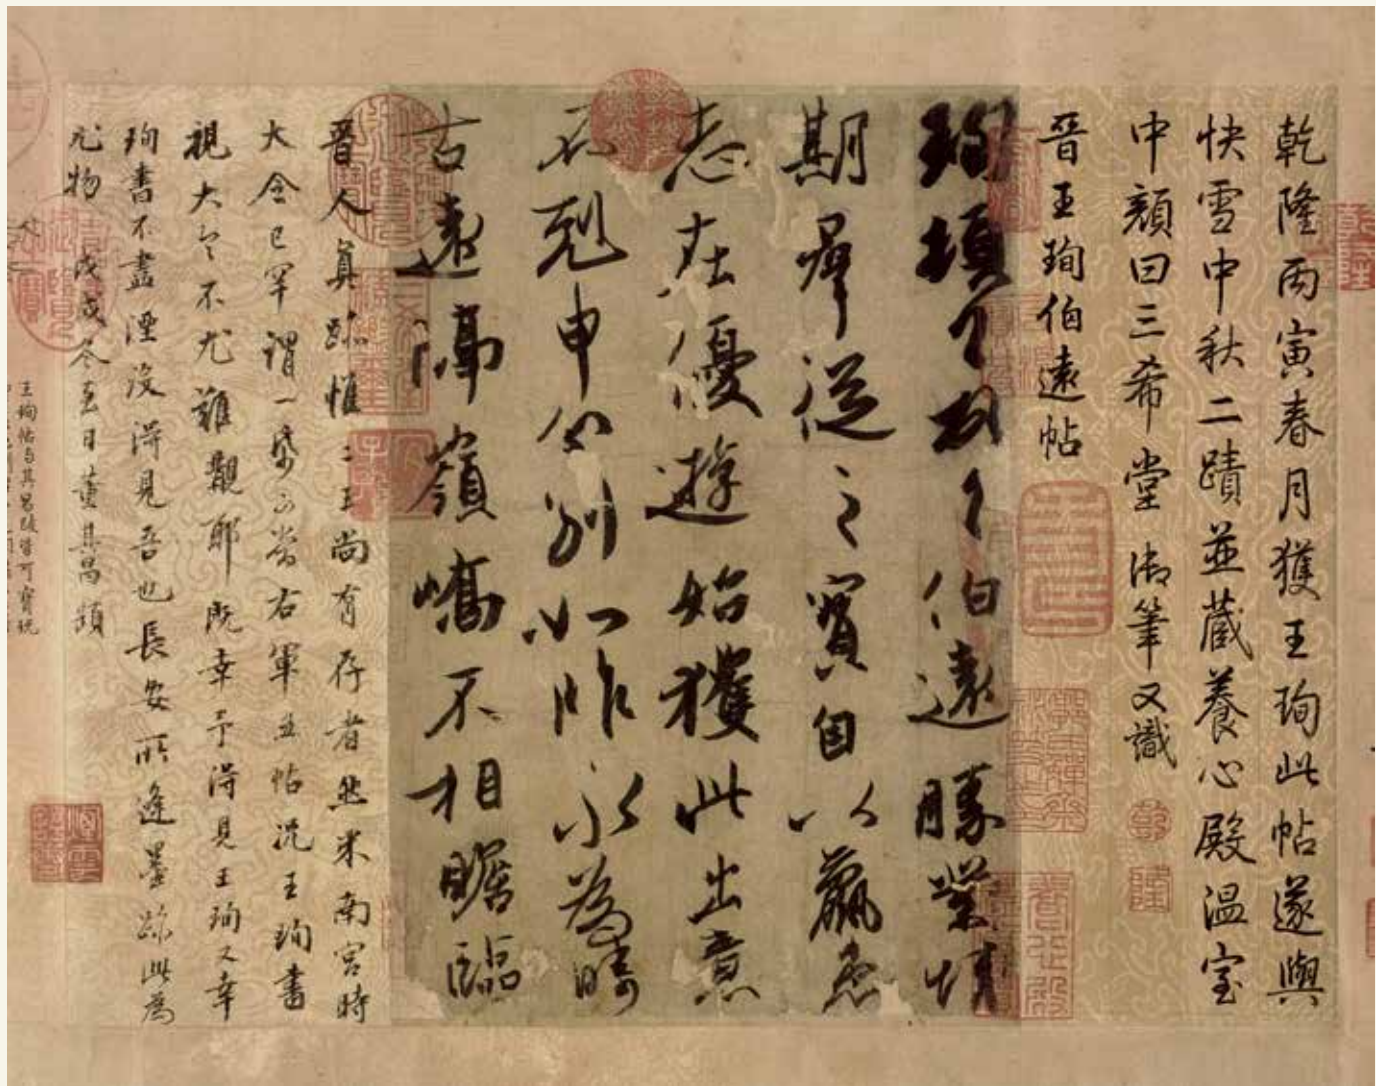 乾隆丙寅春月獲王珣此帖遂與
快雪中秋二蹟並藏養心殿溫室
中顏曰三希堂御筆又識
乾
隆
晉王珣伯遠帖
珣頓首頓首伯遠勝業情
期群從之寶自以羸患
志在優遊始獲此出意
不剋申分別如昨永為疇
古遠隔嶺嶠不相瞻臨
晉人真跡惟二王尚有存者然米南宮時
大令已罕謂一紙可當右軍五帖況王珣書
視大令不尤難覯耶既幸予得見王珣又幸
珣書不盡湮沒得見吾也長安所逢墨跡此為
尤物戊戌冬至日董其昌題
王珣帖與其昌跋皆可寶玩